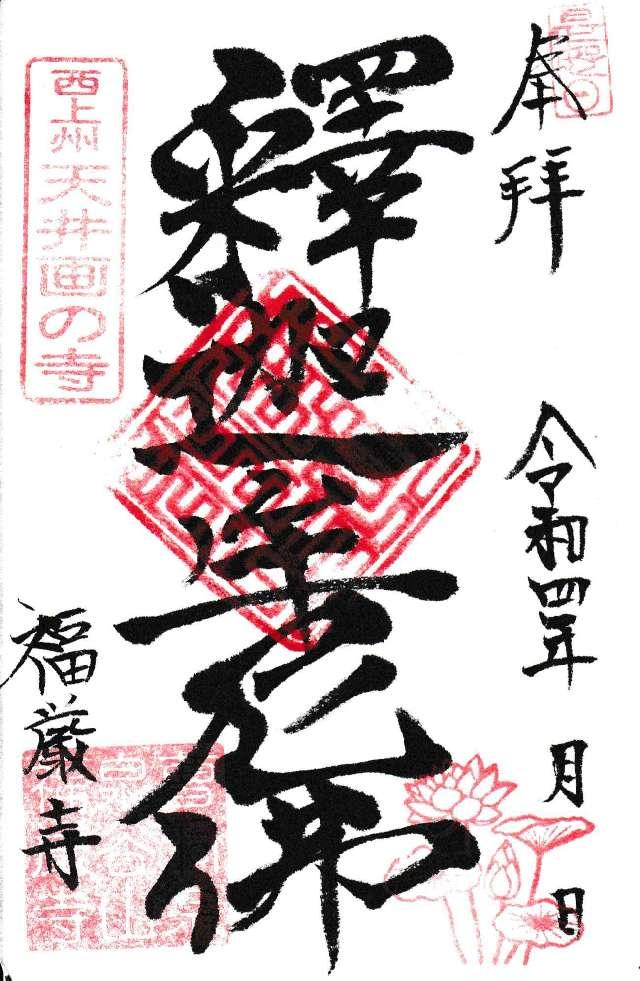 奉拝
令和四年 月 日
釋迦牟尼佛
西上州 天井画の寺
福厳寺